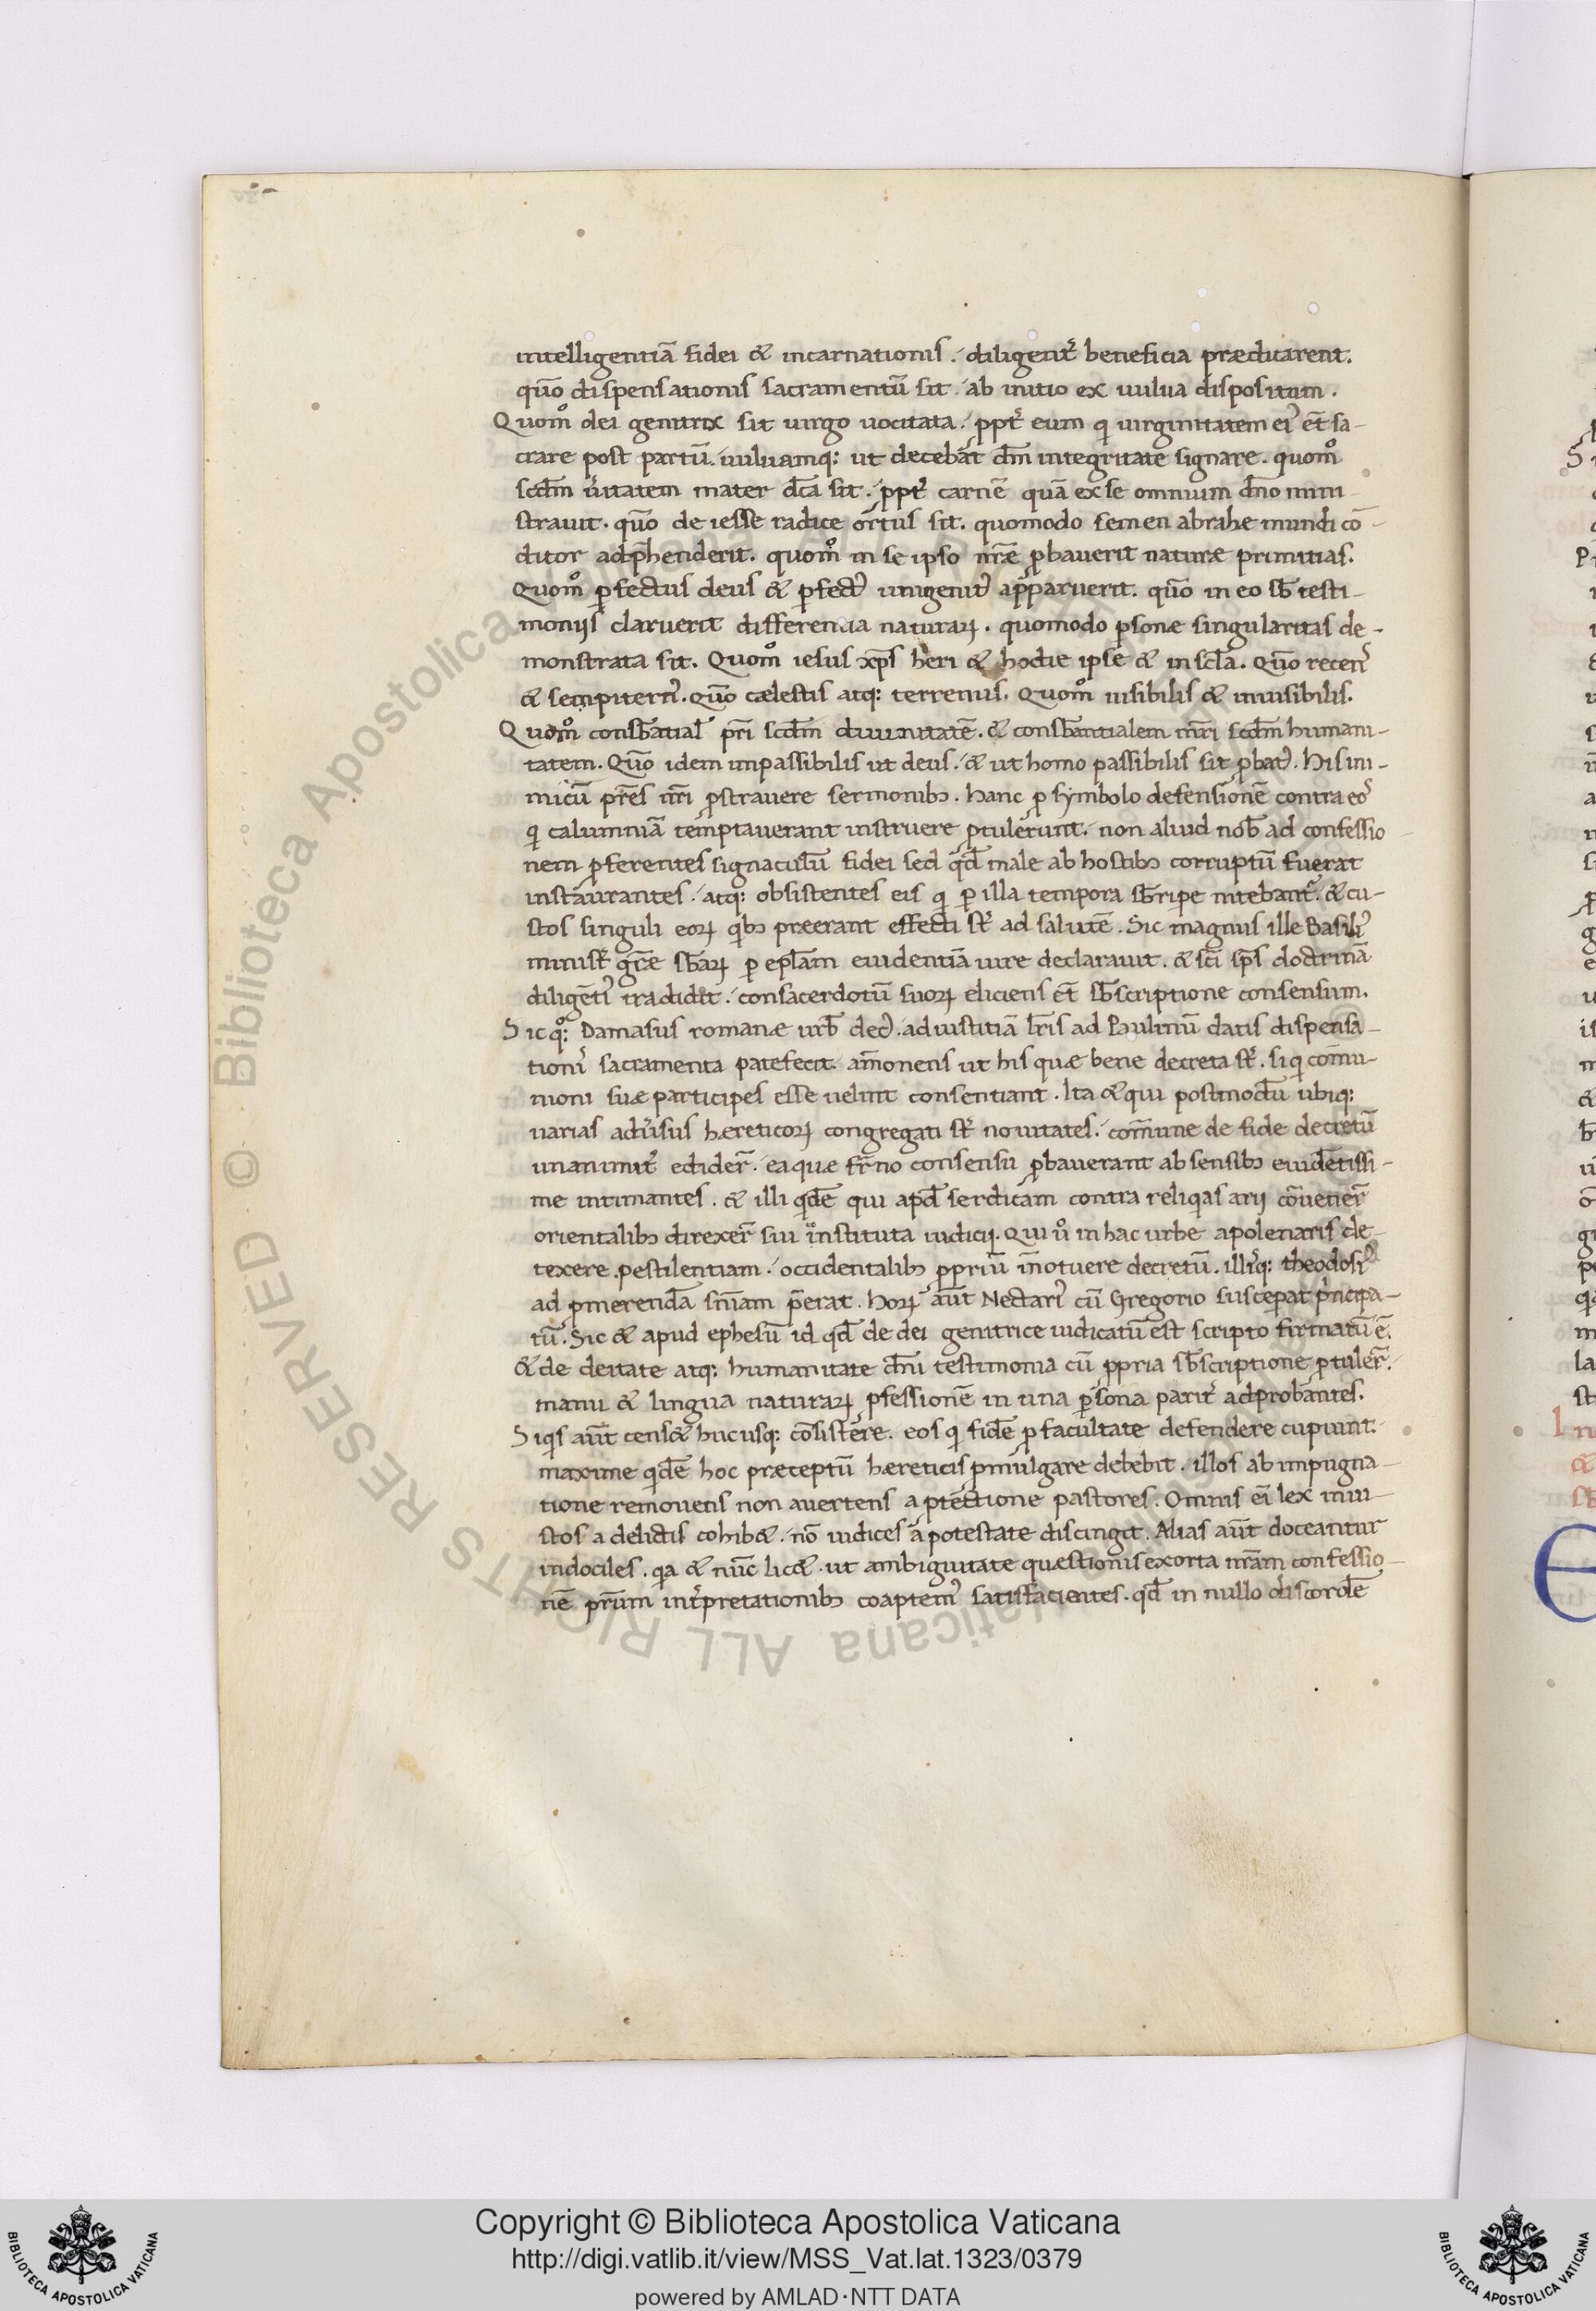 intelligentiā fidei & incarnationis. diligent᷑ beneficia prædicarent.
quō dispensationis sacramentū sit. ab initio ex uulua dispositum.
Quom̊ dei genitrix sit uirgo uocitata. ꝓpt᷑ eum q uirginitatem ei᷒ et̄ sa-
crare post partū. uuluamq: ut decebat dm̄ integritate signare. quom̊
scdm̄ ueritatem mater dc̄a sit. ꝓpt᷑ carnē quā ex se omnium dn̄o mini
strauit. quō de iesse radice ortus sit. quomodo semen abrahe mundi cō-
ditor adp̄henderit. quom̊ in se ipso nr̄æ ꝓbauerit naturæ primitias.
Quom̊ ꝑfectus deus & ꝑfect᷒ unigenit᷒ apparuerit. quō in eo sb̄ testi-
monijs claruerit differentia naturaꝝ. quomodo ꝑsonæ singularitas de-
monstrata sit. Quom̊ iesus xp̄s heri & hodie ipse & in scl̄a. Quō recen᷒
& sempitern᷒. Quō cælestis atq: terrenus. Quom̊ uisibilis & inuisibilis.
Quom̊ consb̄atial᷒ pr̄i scdm̄ diuinitatē. & consb̄antialem mr̄i scdm̄ humani-
tatem. Quō idem impassibilis ut deus. & ut homo passibilis sit ꝓbat᷒. His ini-
micū pr̄es nr̄i ꝓstrauere sermonibꝫ. hanc ꝓ symbolo defensionē contra eo᷒
q calumniā temptauerant instruere ꝓtulerunt. non aliud nob̄ ad confessio
nem ꝓferentes signaculū fidei sed qd̄ male ab hostibꝫ corruptū fuerat
instaurantes. atq: obsistentes eis q ꝑ illa tempora sb̄ripe nitebant᷑. & cu-
stos singuli eoꝝ qibꝫ preerant effecti st᷑ ad salutē. Sic magnus ille Basili᷒
minist᷑ gr̄æ sb̄aꝝ ꝑ epl̄am euidentiā iure declarauit. & sc̄i sp̄s doctrinā
diligēti᷒ tradidit. consacerdotū suoꝝ eliciens et̄ sb̄scriptione consensum.
Sic qͦ: Damasus romanæ urb̄ dec᷒. ad iustitiā lr̄is ad Paulinū datis dispensa-
tioni᷒ sacramenta patefecit. am̄onens ut his quæ bene decreta st᷑. siq com̄u-
nioni suæ participes esse uelint consentiant. Ita & qui postmodū ubiq:
uarias adūsus hæreticoꝝ congregati st᷑ nouitates. com̄une de fide decretū
unanimit᷑ edider̄. ea quæ fr̄no consensu ꝓbauerant absensibꝫ euidētissi-
me intimantes. & illi qdē qui apd̄ serdicam contra reliqas arij cōuener̄
orientalibꝫ direxer̄ sui instituta iudicij. Qui ů in hac urbe apolenaris de-
texere pestilentiam. occidentalibꝫ ꝓpriū in̄otuere decretū. illicq: theodosi᷒
ad ꝓmerendā sn̄iam p̄erat. Hoꝝ aūt Nectari᷒ cū Gregorio susceperat pͥncipa-
tū. Sic & apud ephesū id qd̄ de dei genitrice iudicatū est scripto firmatū ē.
& de deitate atq: humanitate dn̄i testimonia cū ꝓpria sb̄scriptione ꝓtuler̄.
manu & lingua naturaꝝ ꝓfessionē in una ꝑsona parit᷑ adprobantes.
Siqis aūt cens& hucusq: cōsistere. eos q fidē ꝓ facultate defendere cupiunt.
maxime qdē hoc præceptū hæreticis ꝓmulgare debebit. illos ab impugna-
tione remouens non auertens a ꝓtectione pastores. Omnis ei̅ lex iniu-
stos a delictis cohib&. nō iudices a potestate discingit. Alias aūt doceantur
indociles. qa & nūc lic&. ut ambiguitate quæstionis exorta nr̄am confessio-
nē pr̄um int᷑pretationibꝫ coaptem᷒ satisfacientes. qd̄ in nullo discordē
Copyright © Biblioteca Apostolica Vaticana
http://digi.vatlib.it/view/MSS_Vat.lat.1323/0379
powered by AMLAD·NTT DATA